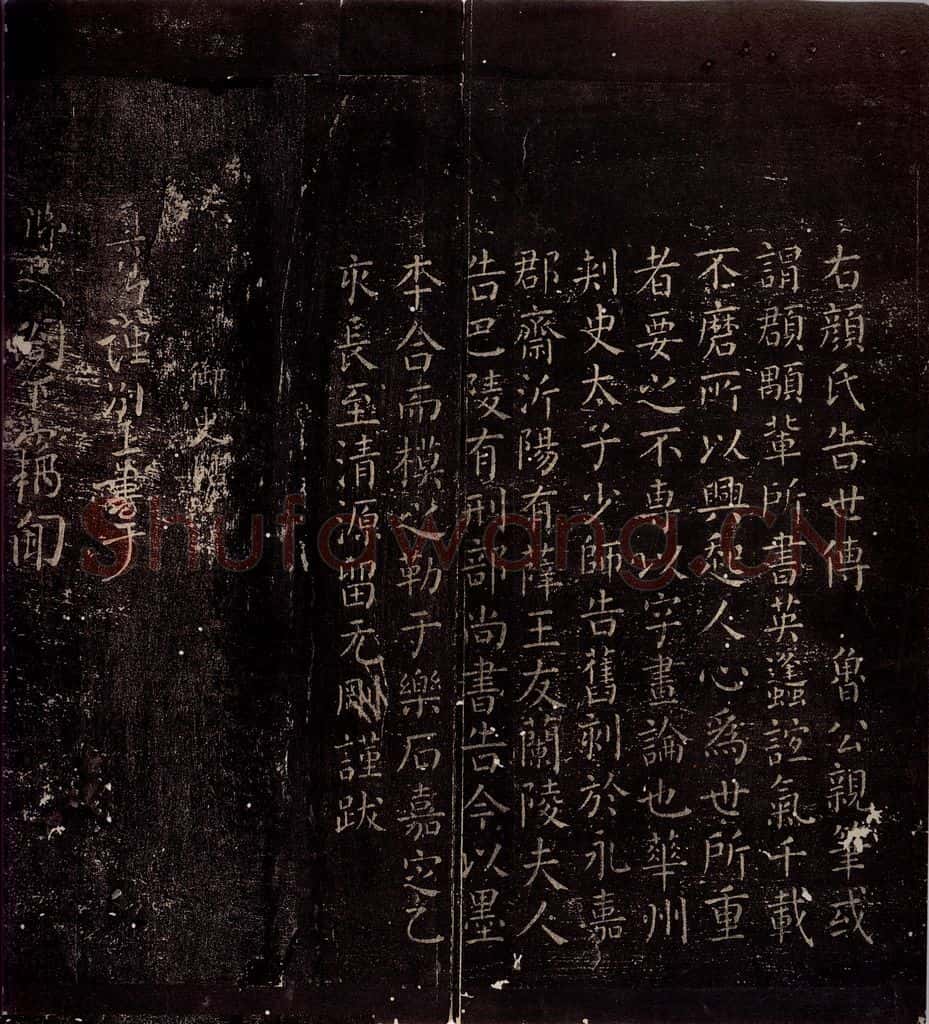 右顔氏告世傳 魯公親筆或
謂頵顒輩所書英遺誼氣千載
不磨所以興起人心爲世所重
者要之不專以字畫論也華州
刺史太子少師告舊刻於永嘉
郡齋沂陽有薛王友蘭陵夫人
告巴陵有刑部尚書告今以墨
本合而模之勒于樂石嘉定乙
亥長至清源留元剛謹跋
御史
謹 手
shufawang.CN